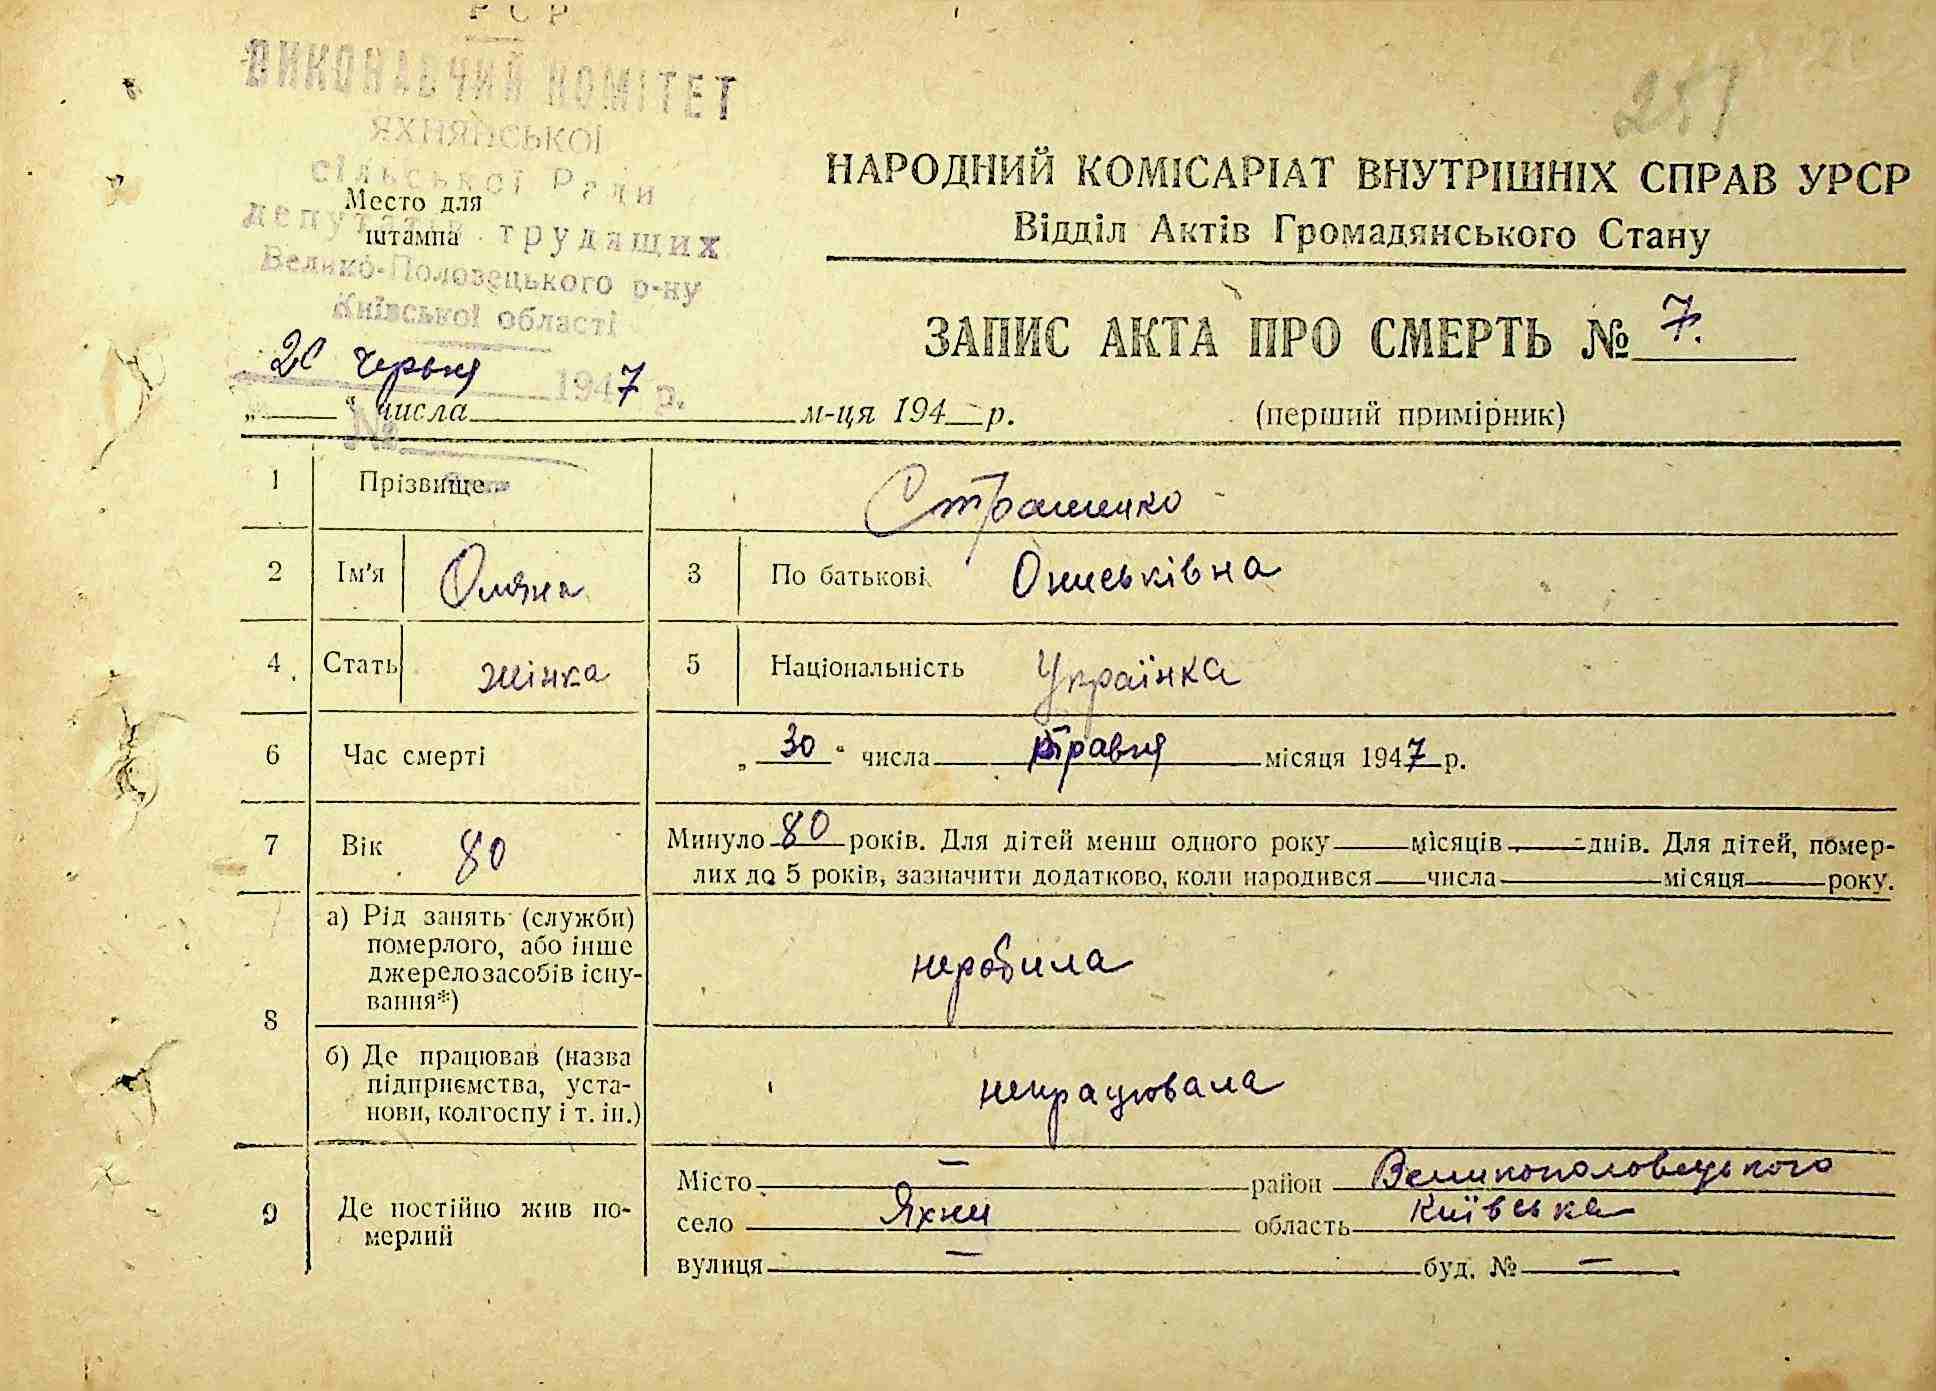 РСР
ВИКОНАВЧИЙ КОМІТЕТ
ЯХНЯНСЬКОЇ
сільської Ради
депутатів трудящих
Велико-Половецького р-ну
Київської області
Место для
штампа
251
НАРОДНИЙ КОМІСАРІАТ ВНУТРІШНІХ СПРАВ УРСР
Відділ Актів Громадянського Стану
ЗАПИС АКТА ПРО СМЕРТЬ № 7.
20 червня 1947 р.
„ “ числа м-ця 194 р. (перший примірник)
№
1 Прізвище
2 Ім'я Оляна 3 По батькові Ониськівна
4 Стать жінка 5 Національність Українка
6 Час смерті „30“ числа травня місяця 1947 р.
7 Вік 80 Минуло 80 років. Для дітей менш одного року місяців днів. Для дітей, помер-
лих до 5 років, зазначити додатково, коли народився числа місяця року.
8 а) Рід занять (служби)
померлого, або інше
джерело засобів існу-
вання*)
неробила
б) Де працював (назва
підприємства, уста-
нови, колгоспу і т. ін.)
непрацювала
9 Де постійно жив по-
мерлий
Місто — район Великополовецького
село Яхни область Київська
вулиця — буд. № —